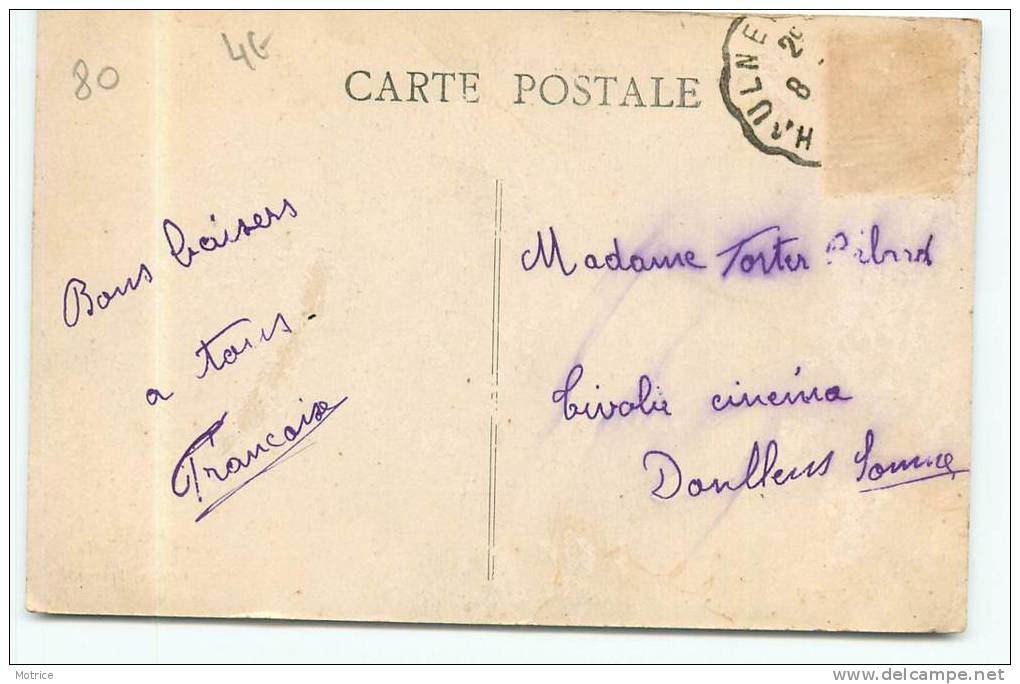 80
4€
CARTE POSTALE
HAULNE
8
Bons baisers
a tous.
Francoise
Madame
Tivoli cinéma
Doullens Somme
Motrice
www.delcampe.net